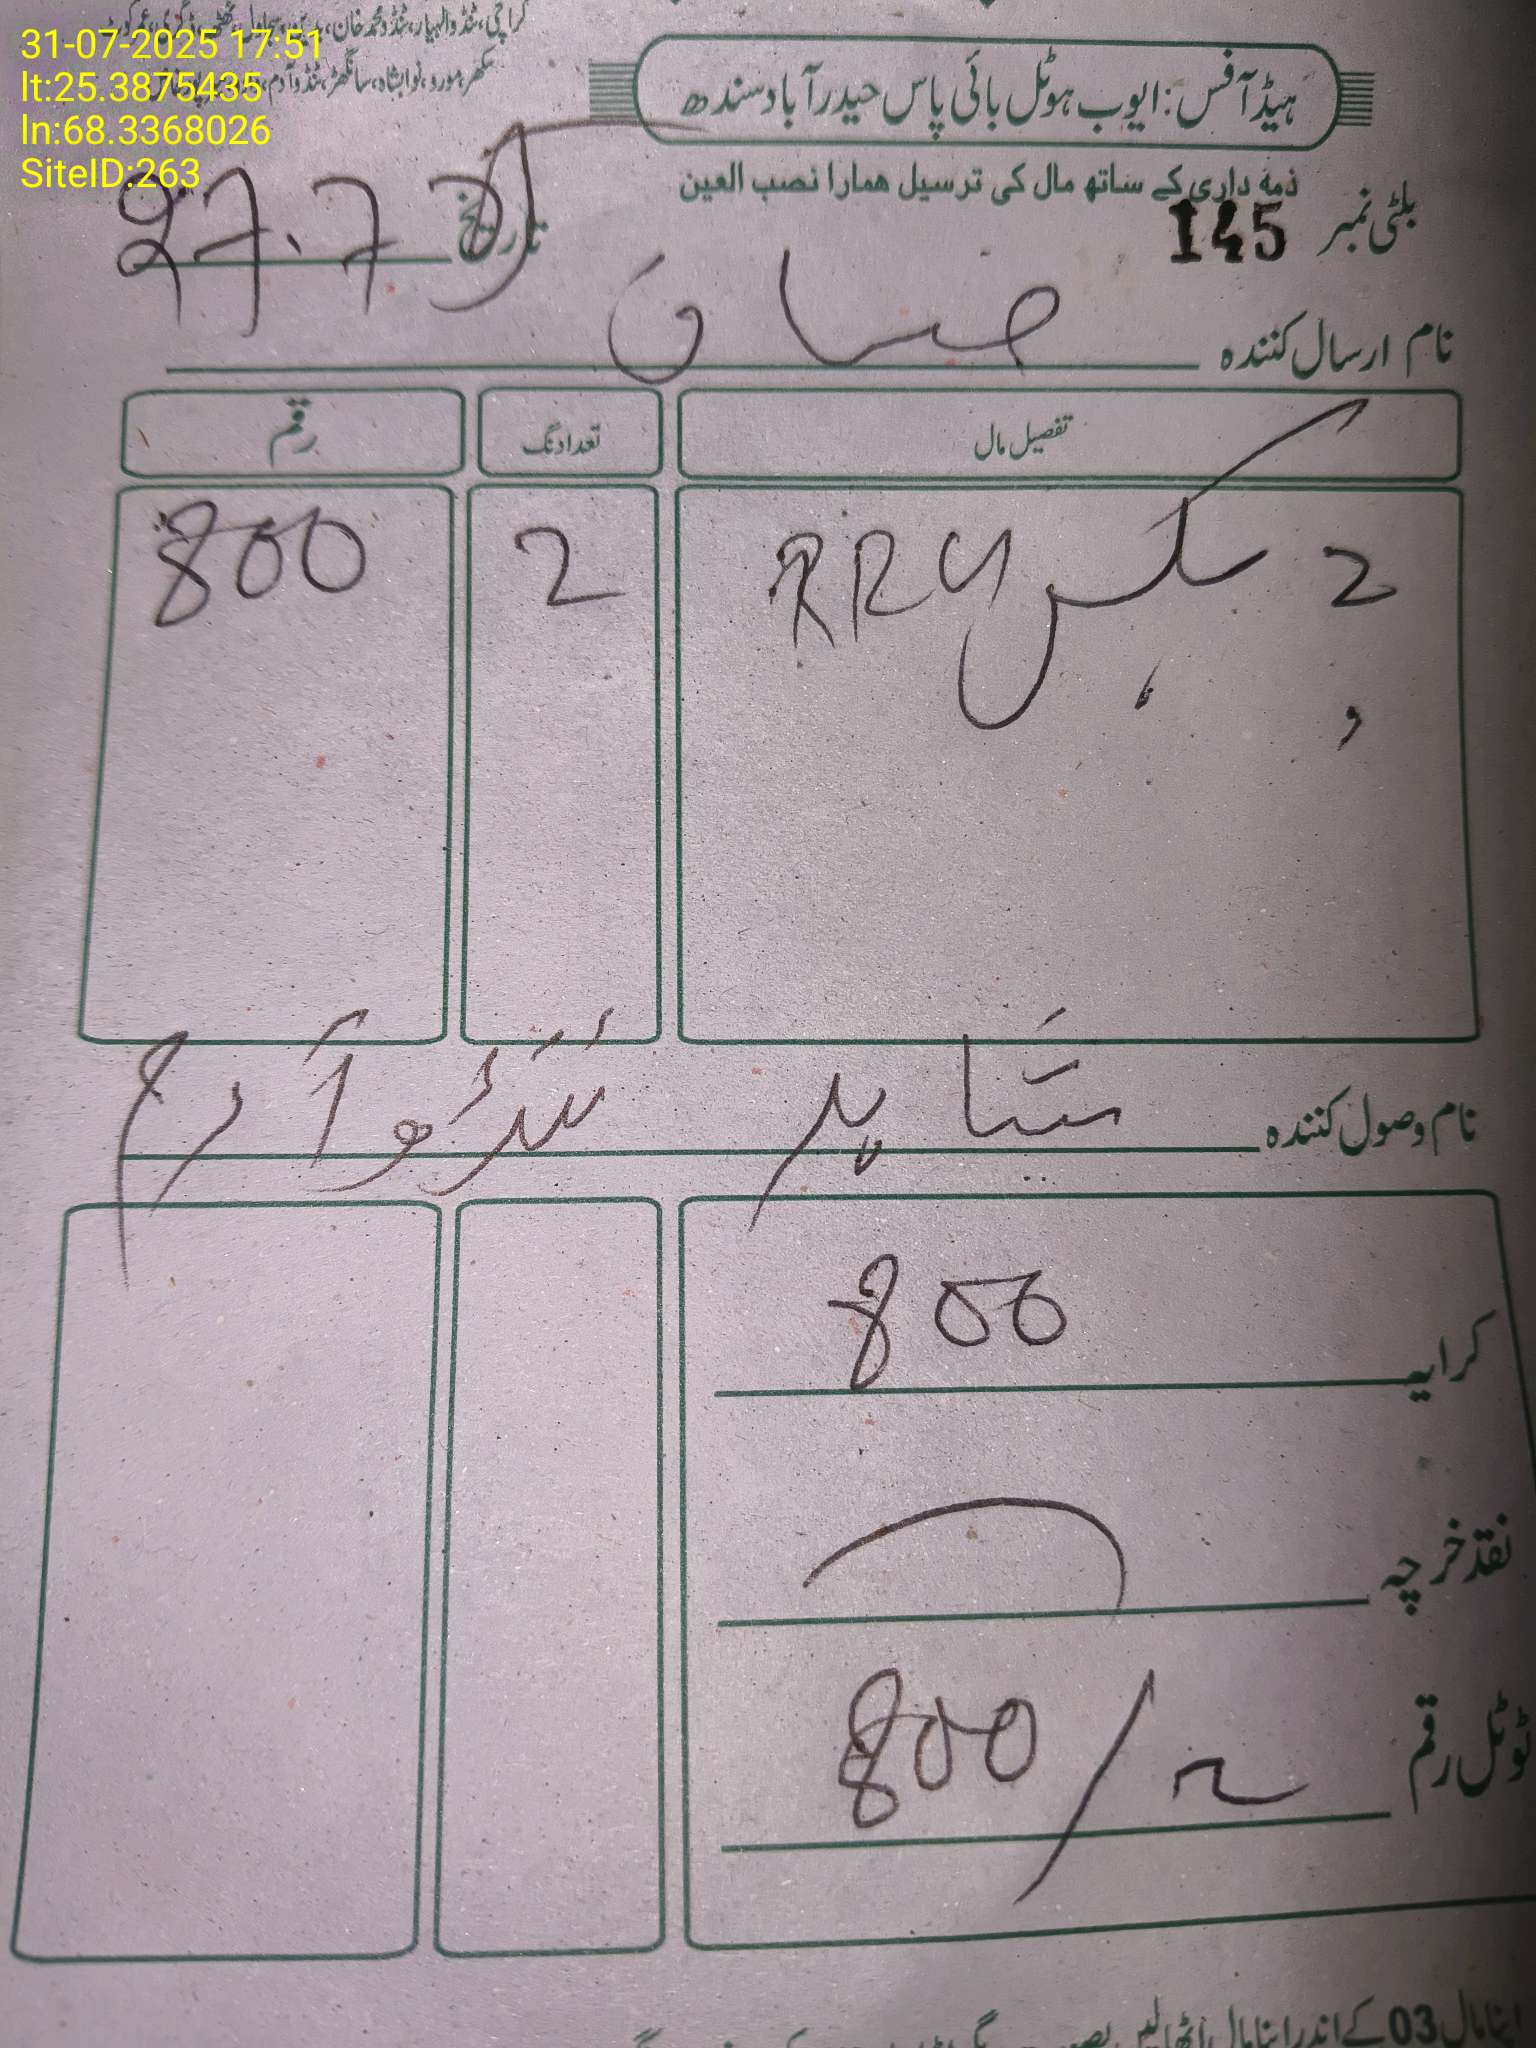 31-07-2025 17:51
lt:25.3875435
ln:68.3368026
SiteID:263
کراچی، ٹنڈوالہیار، ٹنڈو محمد خان،
سکھر، مورو، نوابشاہ، سانگھڑ، ٹنڈوآدم،
ہیڈ آفس: ایوب ہوٹل بائی پاس حیدرآباد سندھ
ذمہ داری کے ساتھ مال کی ترسیل ھمارا نصب العین
بلٹی نمبر 145 تاریخ 27.7
نام ارسال کنندہ
تفصیل مال تعداد نگ رقم
2 بکس RRU 2 800
نام وصول کنندہ ٹنڈو آدم
کرایہ 800
نقد خرچہ
ٹوٹل رقم 800/
اپنا مال 03 کے اندر اپنا مال اٹھالیں